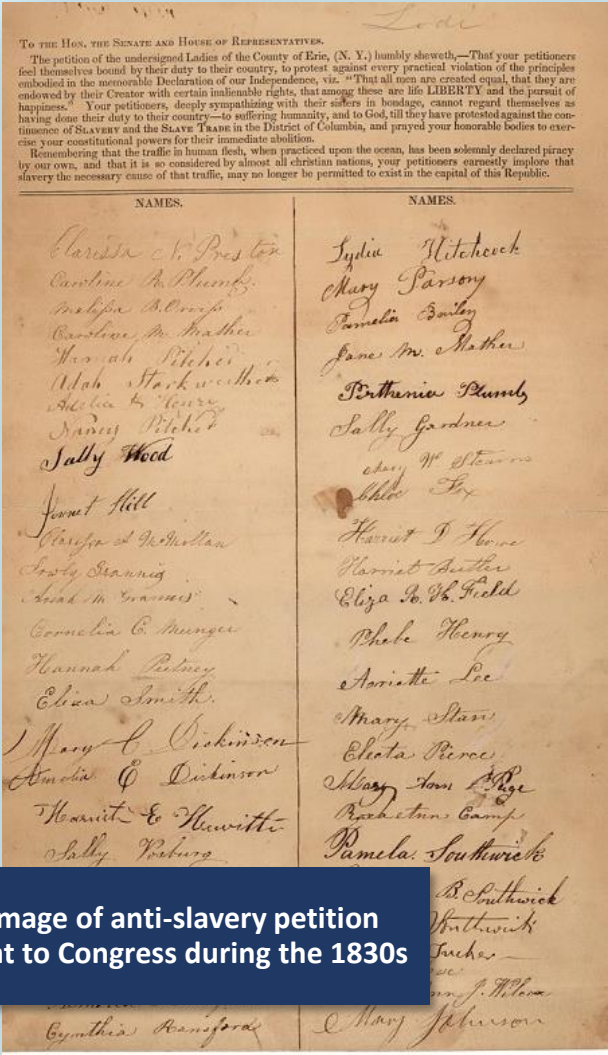 Lodi
TO THE HON. THE SENATE AND HOUSE OF REPRESENTATIVES.
The petition of the undersigned Ladies of the County of Erie, (N. Y.) humbly sheweth,—That your petitioners
feel themselves bound by their duty to their country, to protest against every practical violation of the principles
embodied in the memorable Declaration of our Independence, viz. "That all men are created equal, that they are
endowed by their Creator with certain inalienable rights, that among these are life LIBERTY and the pursuit of
happiness." Your petitioners, deeply sympathizing with their sisters in bondage, cannot regard themselves as
having done their duty to their country—to suffering humanity, and to God, till they have protested against the con-
tinuence of SLAVERY and the SLAVE TRADE in the District of Columbia, and prayed your honorable bodies to exer-
cise your constitutional powers for their immediate abolition.
Remembering that the traffic in human flesh, when practiced upon the ocean, has been solemnly declared piracy
by our own, and that it is so considered by almost all christian nations, your petitioners earnestly implore that
slavery the necessary cause of that traffic, may no longer be permitted to exist in the capital of this Republic.
NAMES.
Clarissa N. Preston
Caroline R. Plumb.
Melissa B. Orvis
Caroline M. Mather
Hannah Pitcher
Adah
Nancy Pitcher
Sally Wood
Hill
McMillan
Cornelia C. Munger
Hannah Putney
Eliza Smith.
Mary C Dickinson
Amelia E Dickinson
Harriet E Hewitt
Sally Vosburg
Cynthia Ransford
NAMES.
Lydia Hitchcock
Mary Parsons
Pamelia Bailey
Jane M. Mather
Perthenia Plumb
Sally Gardner
Mary W Stearns
Chloe Fox
Harriet D Howe
Harriet Butler
Eliza R. H. Field
Phebe Henry
Lee
Mary Starr
Electa Pierce
Mary Ann Page
Camp
Pamela Southwick
B. Southwick
Southwick
Tucker
J. Wilcox
Mary Johnson
mage of anti-slavery petition
nt to Congress during the 1830s